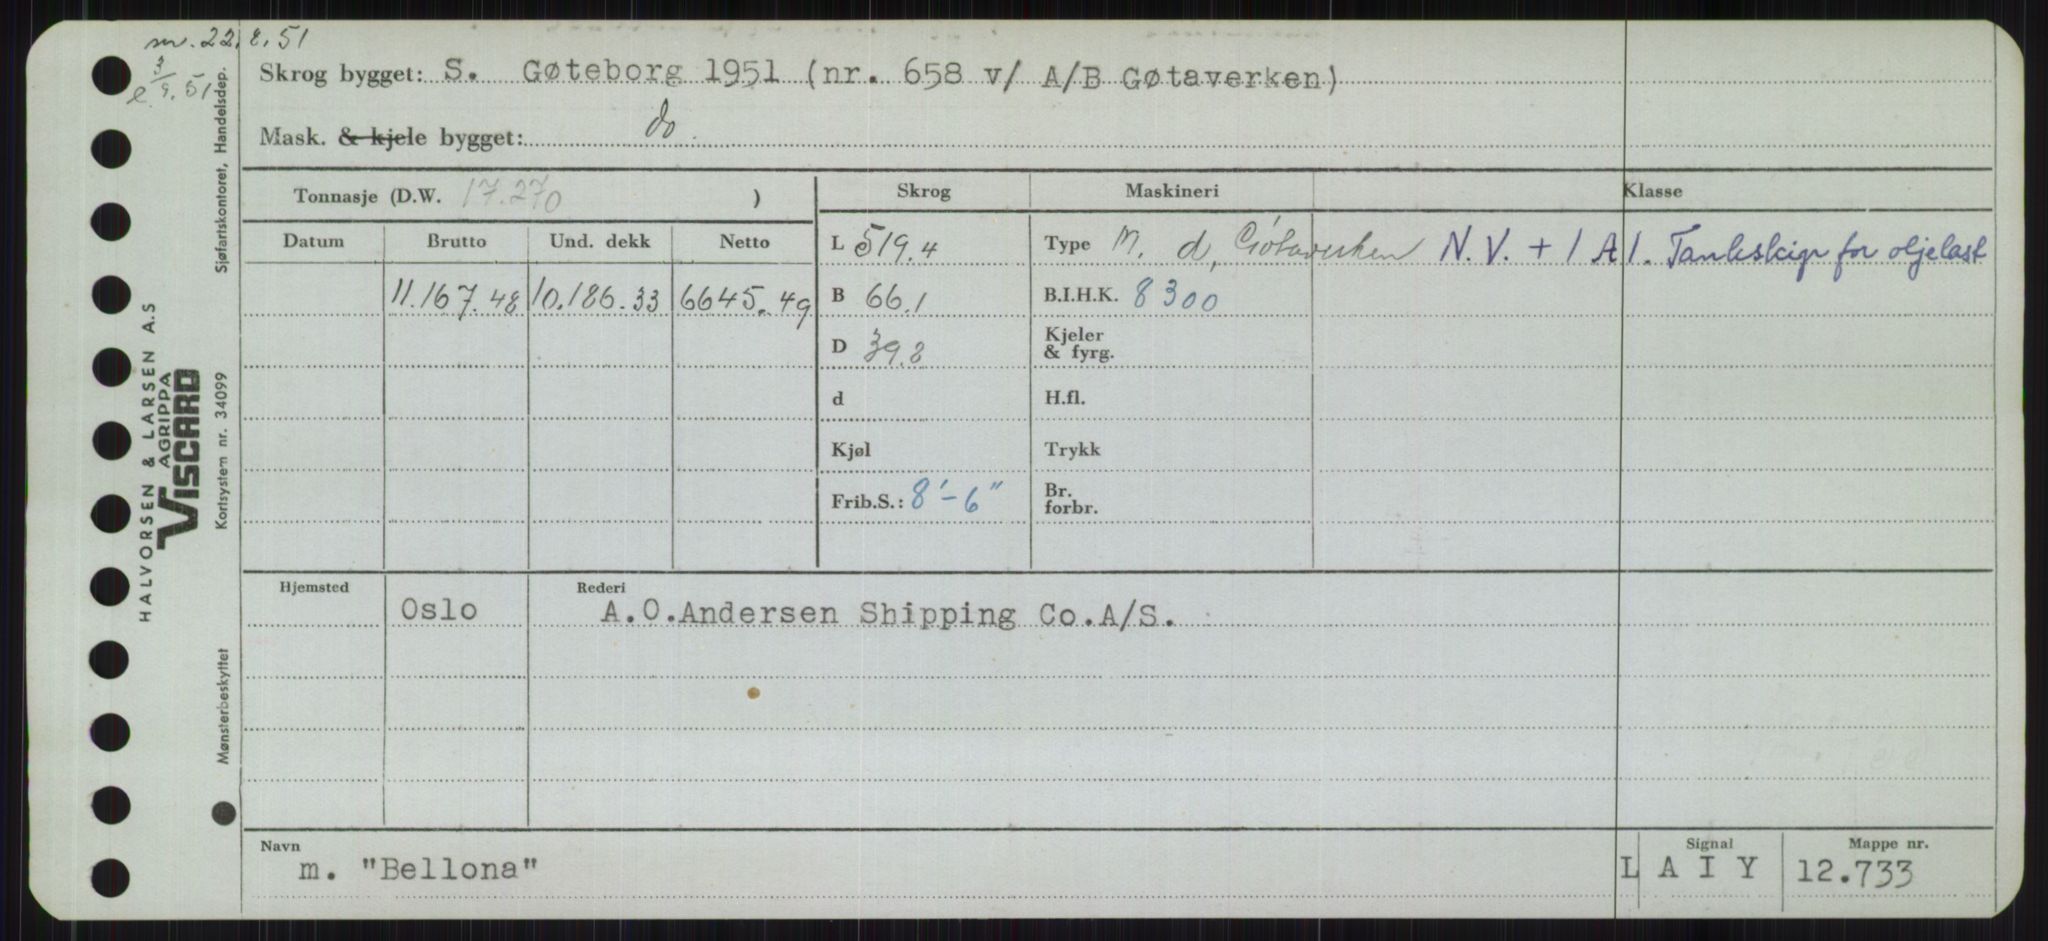 m. 22.8.51
3/9.51
Skrog bygget: S. Gøteborg 1951 (nr. 658 v/ A/B Gøtaverken)
Mask. & kjele bygget: do.
Tonnasje (D.W. 17.270 )
Skrog Maskineri Klasse
Datum Brutto Und. dekk Netto
L 519.4 Type M. d, Götaverken N.V. + 1 A 1. Tankskip for oljelast
11.167.48 10.186.33 6645.49 B 66.1 B.I.H.K. 8300
D 39.8 Kjeler & fyrg.
d H.fl.
Kjøl Trykk
Frib.S.: 8'-6" Br. forbr.
Hjemsted Rederi
Oslo A.O.Andersen Shipping Co.A/S.
Navn Signal Mappe nr.
m. "Bellona" L A I Y 12.733
HALVORSEN & LARSEN A.S
AGRIPPA
VISCARD
Sjøfartskontoret, Handelsdep.
Kortsystem nr. 34099
Mønsterbeskyttet